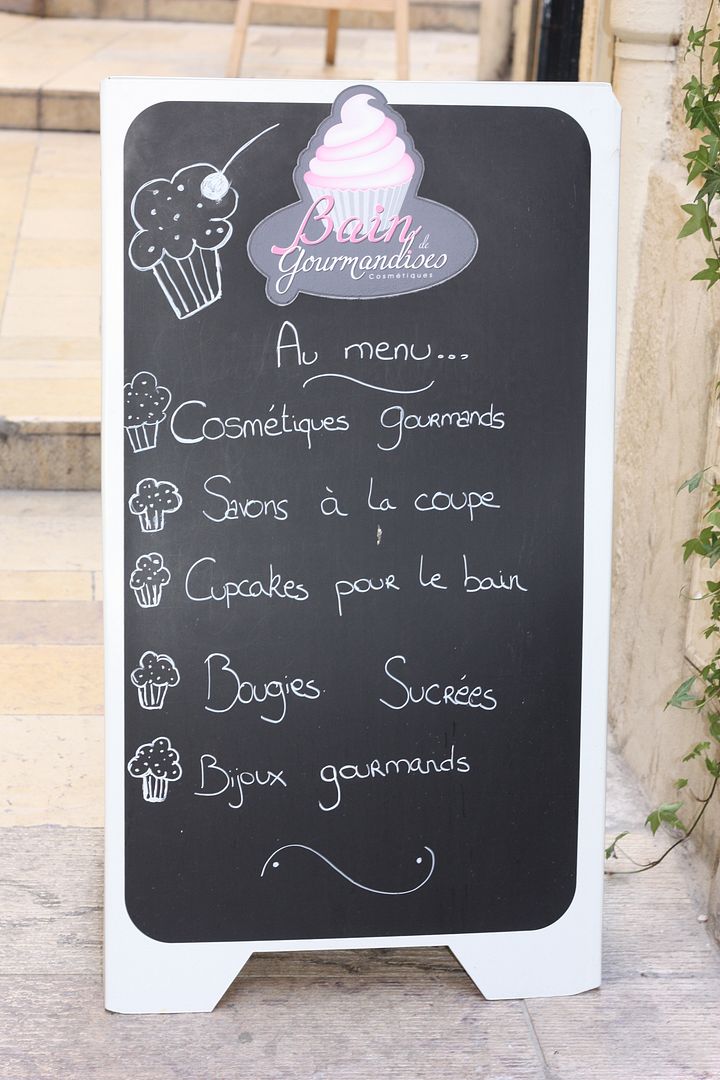 Bain de
Gourmandises
Cosmétiques
Au menu...
Cosmétiques gourmands
Savons à la coupe
Cupcakes pour le bain
Bougies Sucrées
Bijoux gourmands